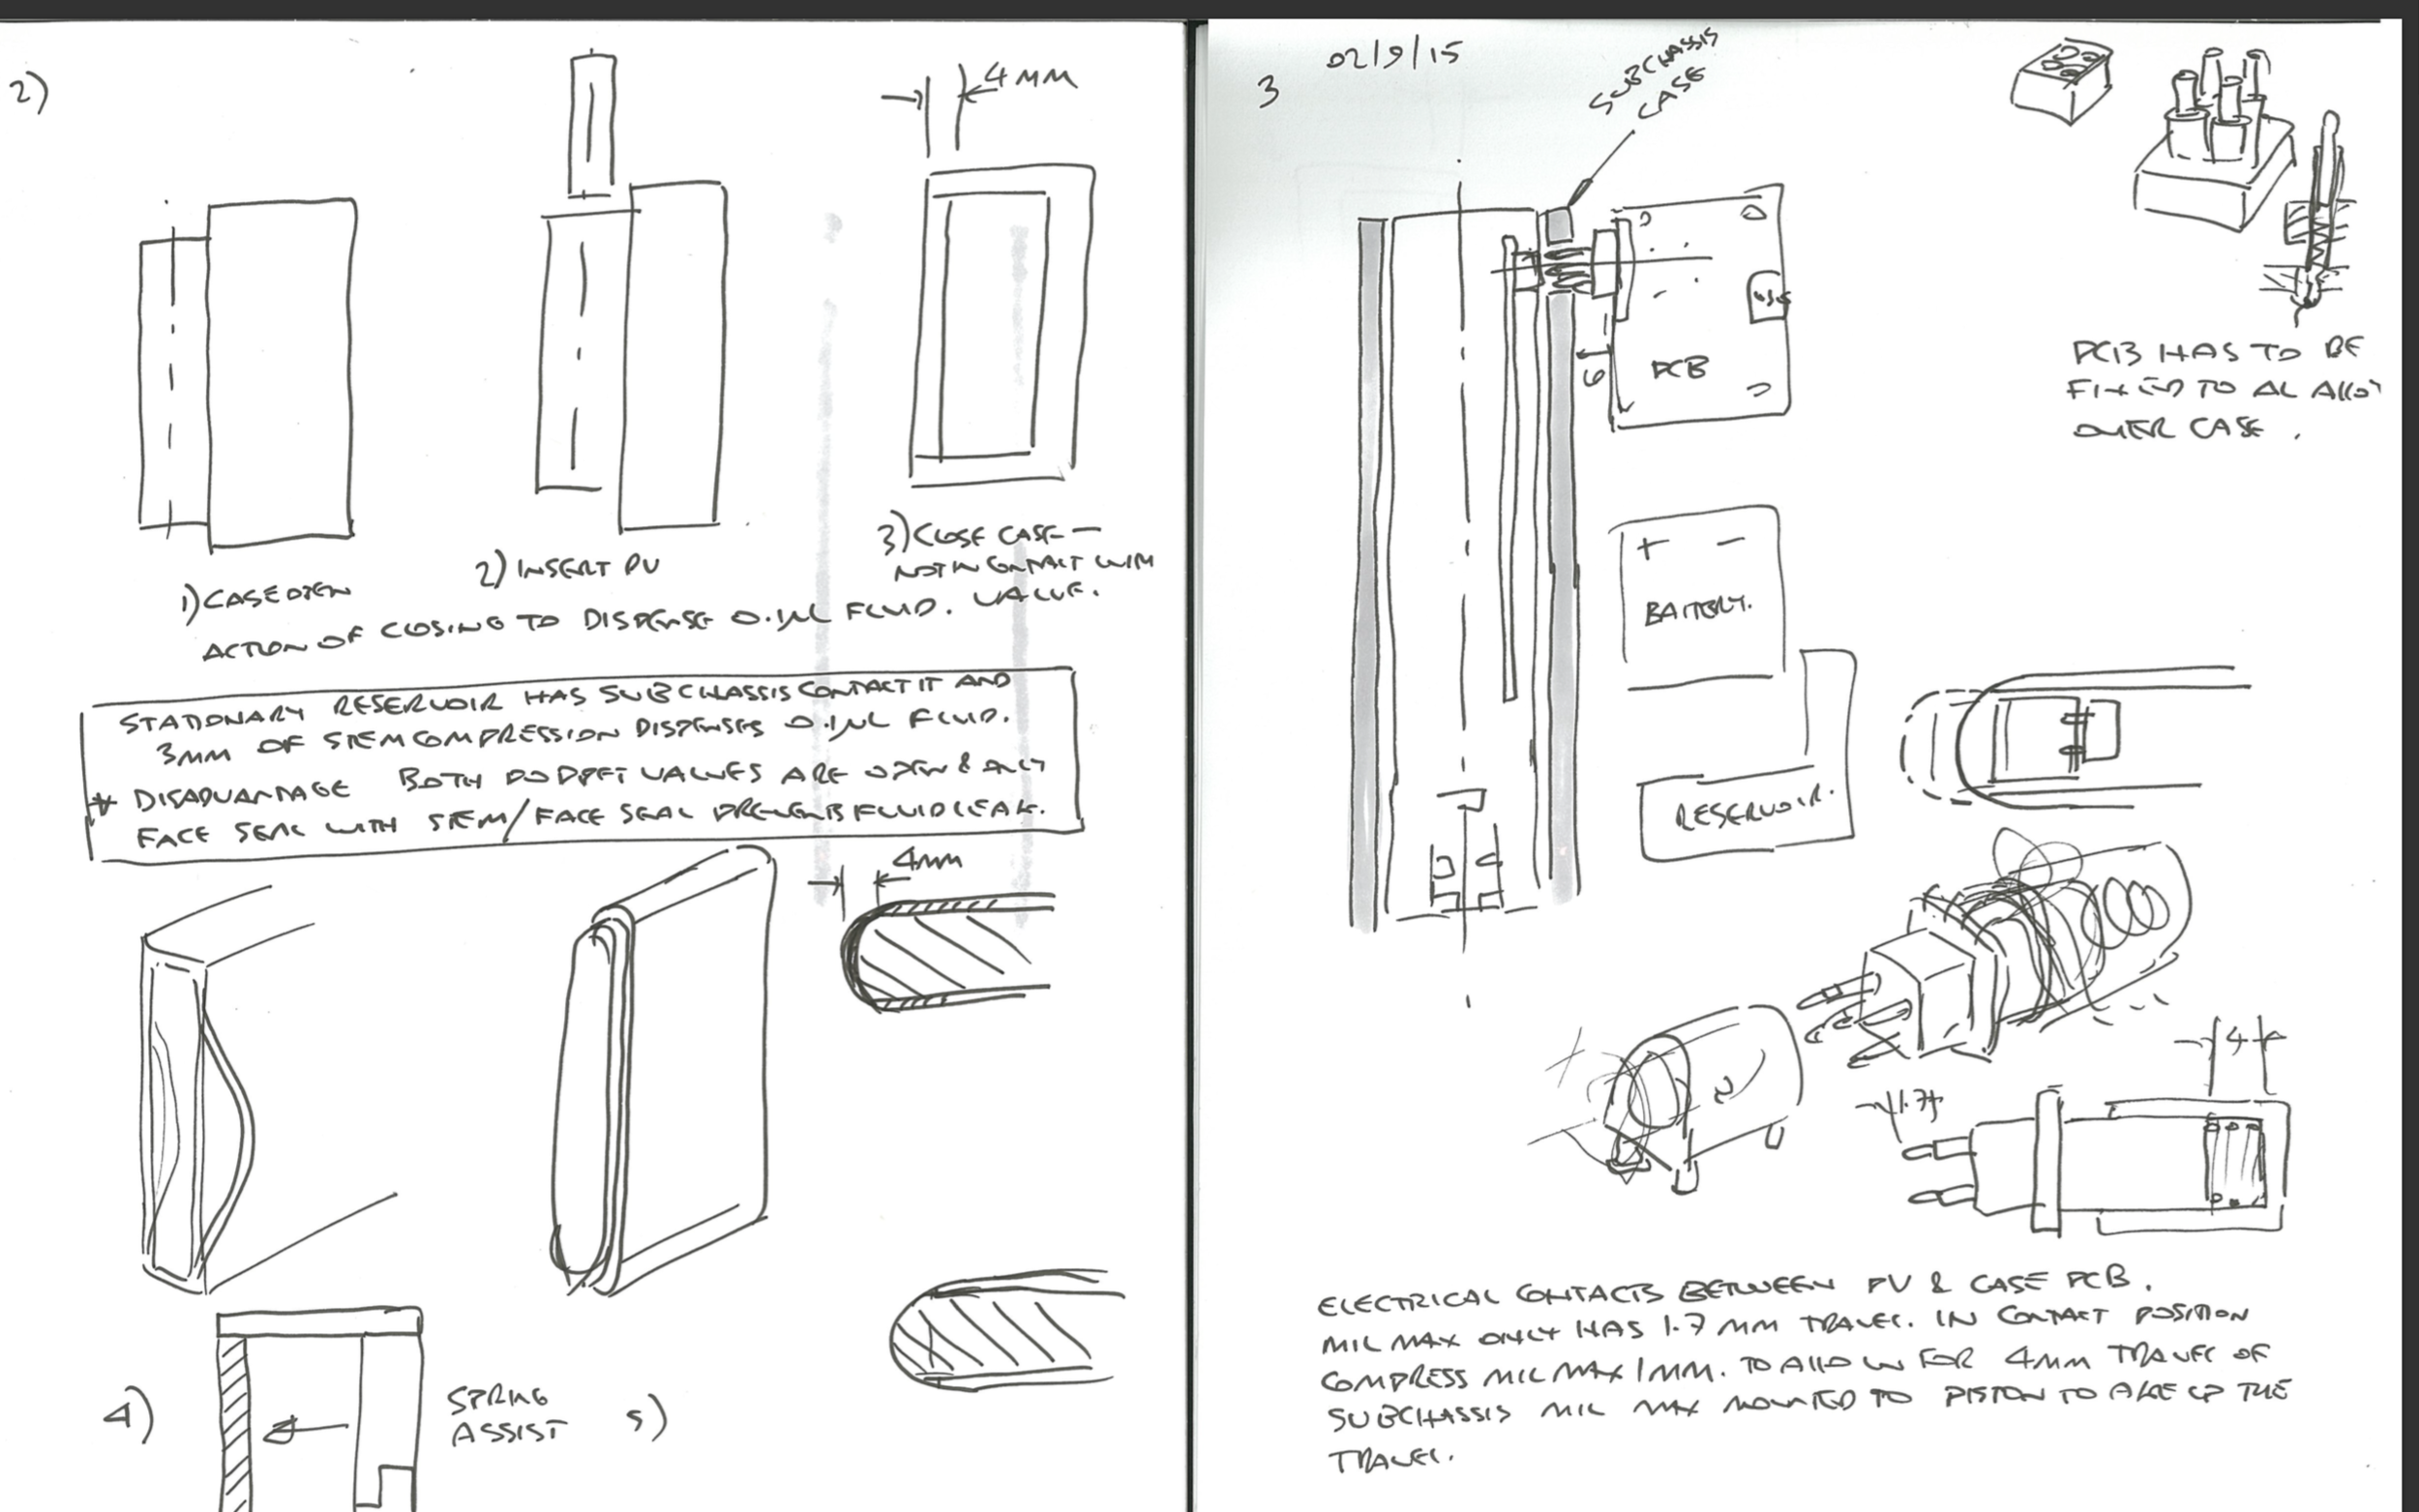 2)
4MM
1) CASE OPEN
2) INSERT PV
3) CLOSE CASE —
NOT IN CONTACT WITH
VALVE.
ACTION OF CLOSING TO DISPENSE 0.1µL FLUID.
STATIONARY RESERVOIR HAS SUBCHASSIS CONTACT IT AND
3MM OF STEM COMPRESSION DISPENSES 0.1µL FLUID.
* DISADVANTAGE BOTH POPPET VALVES ARE OPEN & ONLY
FACE SEAL WITH STEM/FACE SEAL PREVENTS FLUID LEAK.
4MM
4)
SPRING
ASSIST
5)
3
02/9/15
SUBCHASSIS
CASE
PCB
6
USB
PCB HAS TO BE
FIXED TO AL ALLOY
OUTER CASE.
+ -
BATTERY.
RESERVOIR.
4
1.7
ELECTRICAL CONTACTS BETWEEN PV & CASE PCB.
MIL MAX ONLY HAS 1.7 MM TRAVEL. IN CONTACT POSITION
COMPRESS MIL MAX 1MM. TO ALLOW FOR 4MM TRAVEL OF
SUBCHASSIS MIL MAX MOUNTED TO PISTON TO TAKE UP THE
TRAVEL.